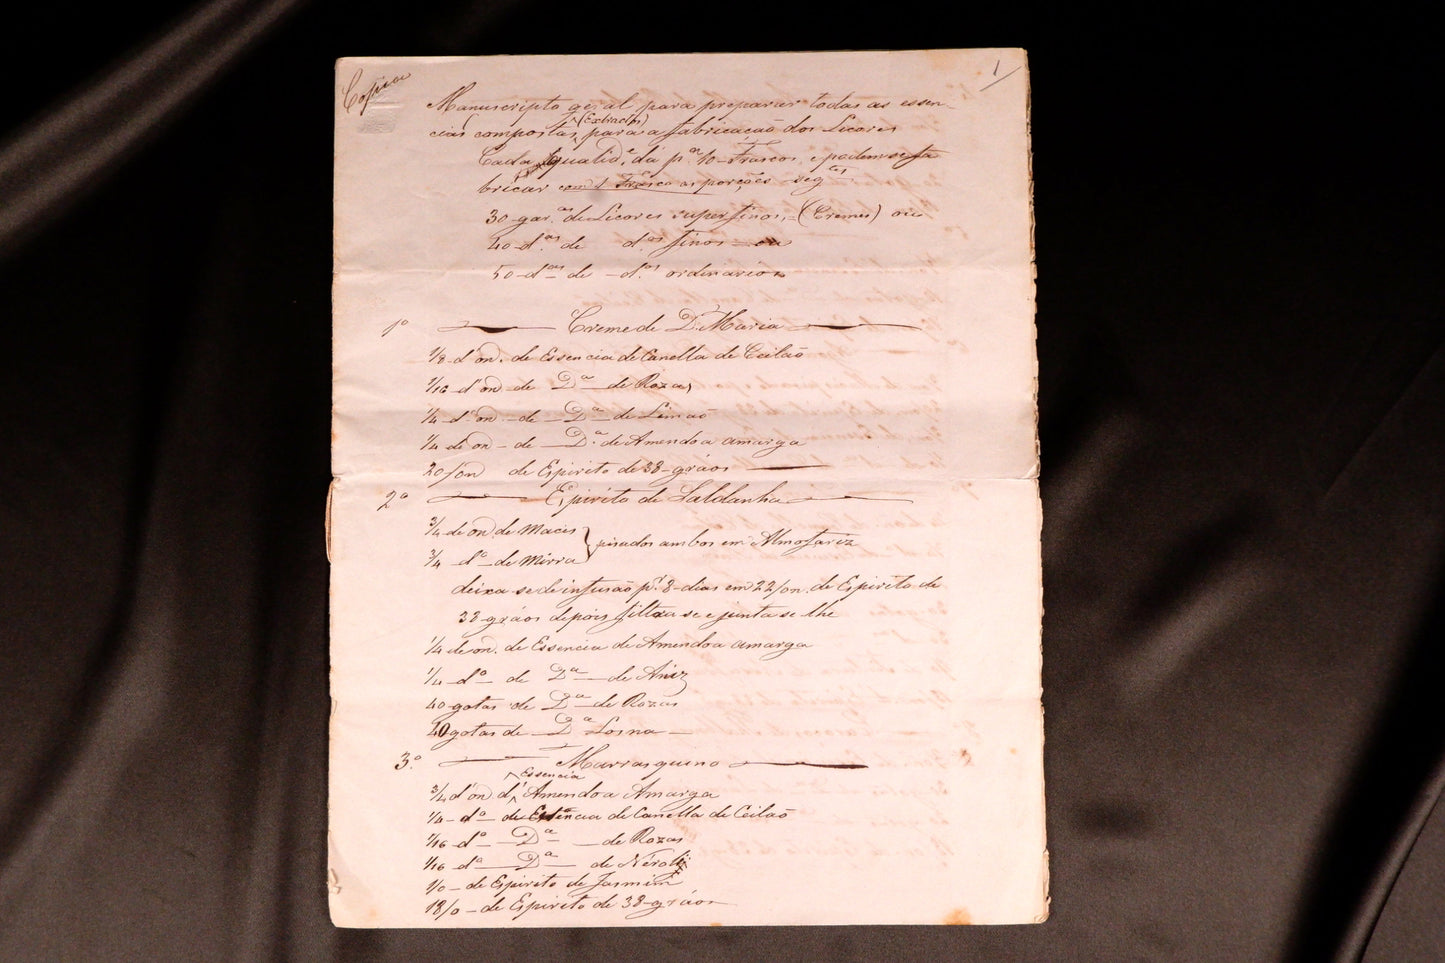 Copia
1
Manuscripto geral para preparar todas as essen-
cias compostas (Extractos) para a fabricacaõ dos Licores
Cada qualid.e dá p.a 10 Frascos, e podem se fa
bricar com 1 Frasco as porções segtes
30-gar.as de Licores superfinos, (Cremes) ou
40-d.as de d.os finos ou
50-d.as de d.os ordinarios
1o Creme de D. Maria
1/8 d'on. de Essencia de Canella de Ceilaõ
1/16 d'on de Da de Rozas
1/4 d'on. de Da de Limaõ
1/4 de on de Da de Amendoa amarga
20/on de Espirito de 38-gráos
2o Espirito de Saldanha
3/4 de on de Macis
3/4 do de Mirra } pisados ambos em Almofariz
deixa-se de infusaõ pr 8-dias em 22/on. de Espirito de
38-gráos depois filtra se e junta se lhe
1/4 de on. de Essencia de Amendoa amarga
1/4 do de Da de Aniz
40 gotas de Da de Rozas
40 gotas de Da Losna
3o Marrasquino
3/4 d'on d' Essencia Amendoa Amarga
1/4 do de Essencia de Canella de Ceilaõ
1/16 do Da de Rozas
1/16 do Da de Néroli
1/0 de Espirito de Jasmim
18/0 de Espirito de 38-gráos